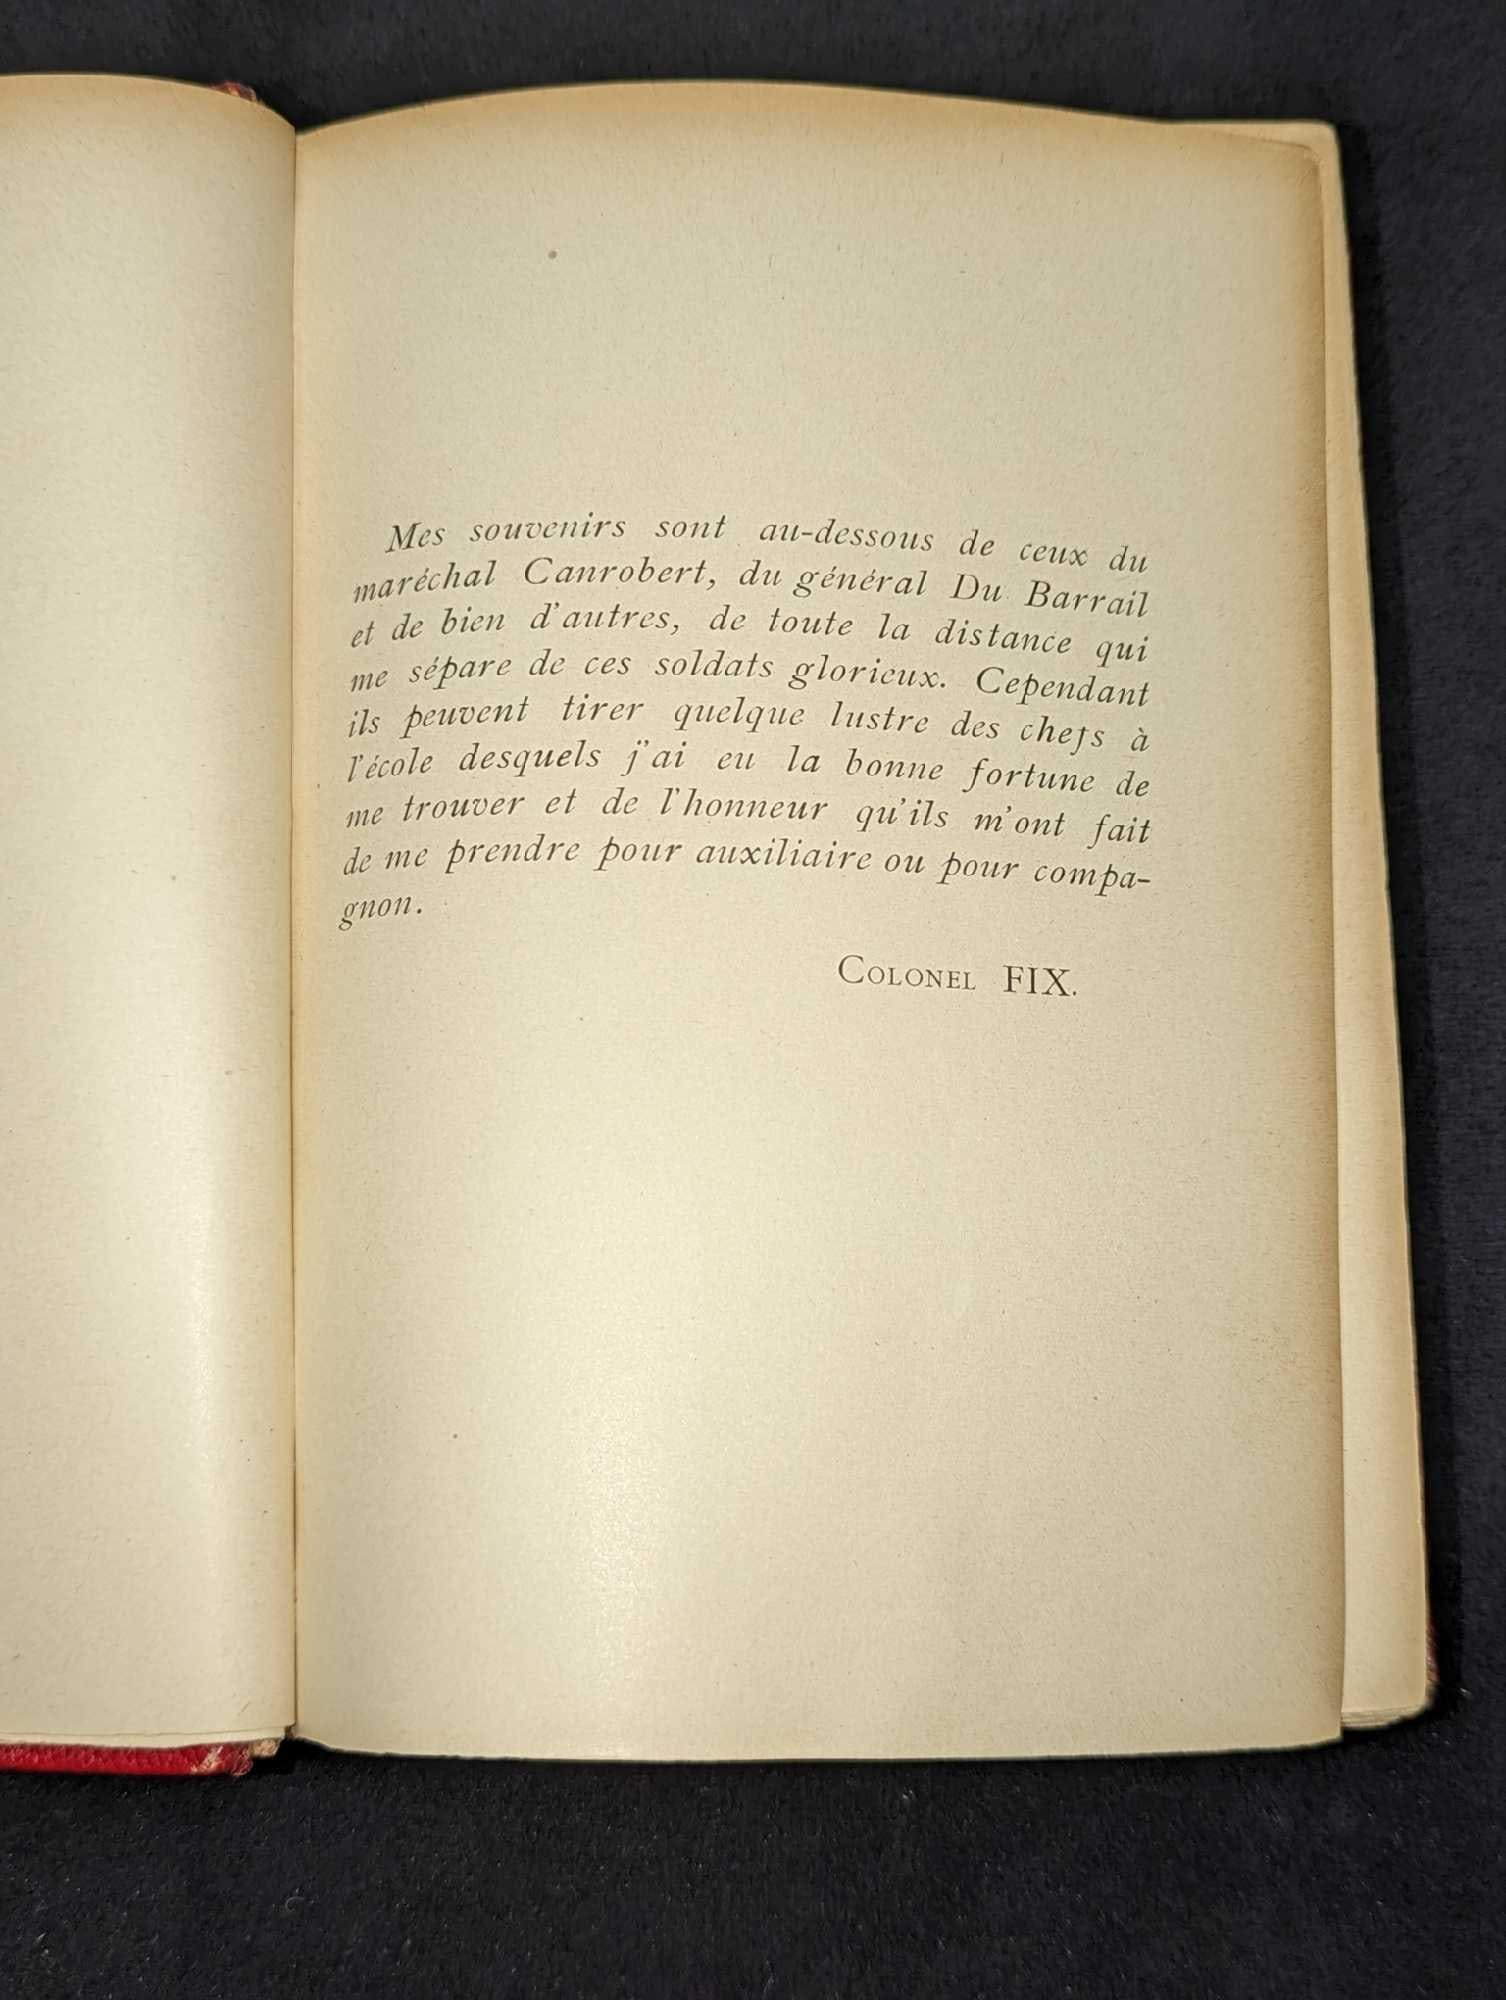 Mes souvenirs sont au-dessous de ceux du
maréchal Canrobert, du général Du Barrail
et de bien d'autres, de toute la distance qui
me sépare de ces soldats glorieux. Cependant
ils peuvent tirer quelque lustre des chefs à
l'école desquels j'ai eu la bonne fortune de
me trouver et de l'honneur qu'ils m'ont fait
de me prendre pour auxiliaire ou pour compa-
gnon.
COLONEL FIX.